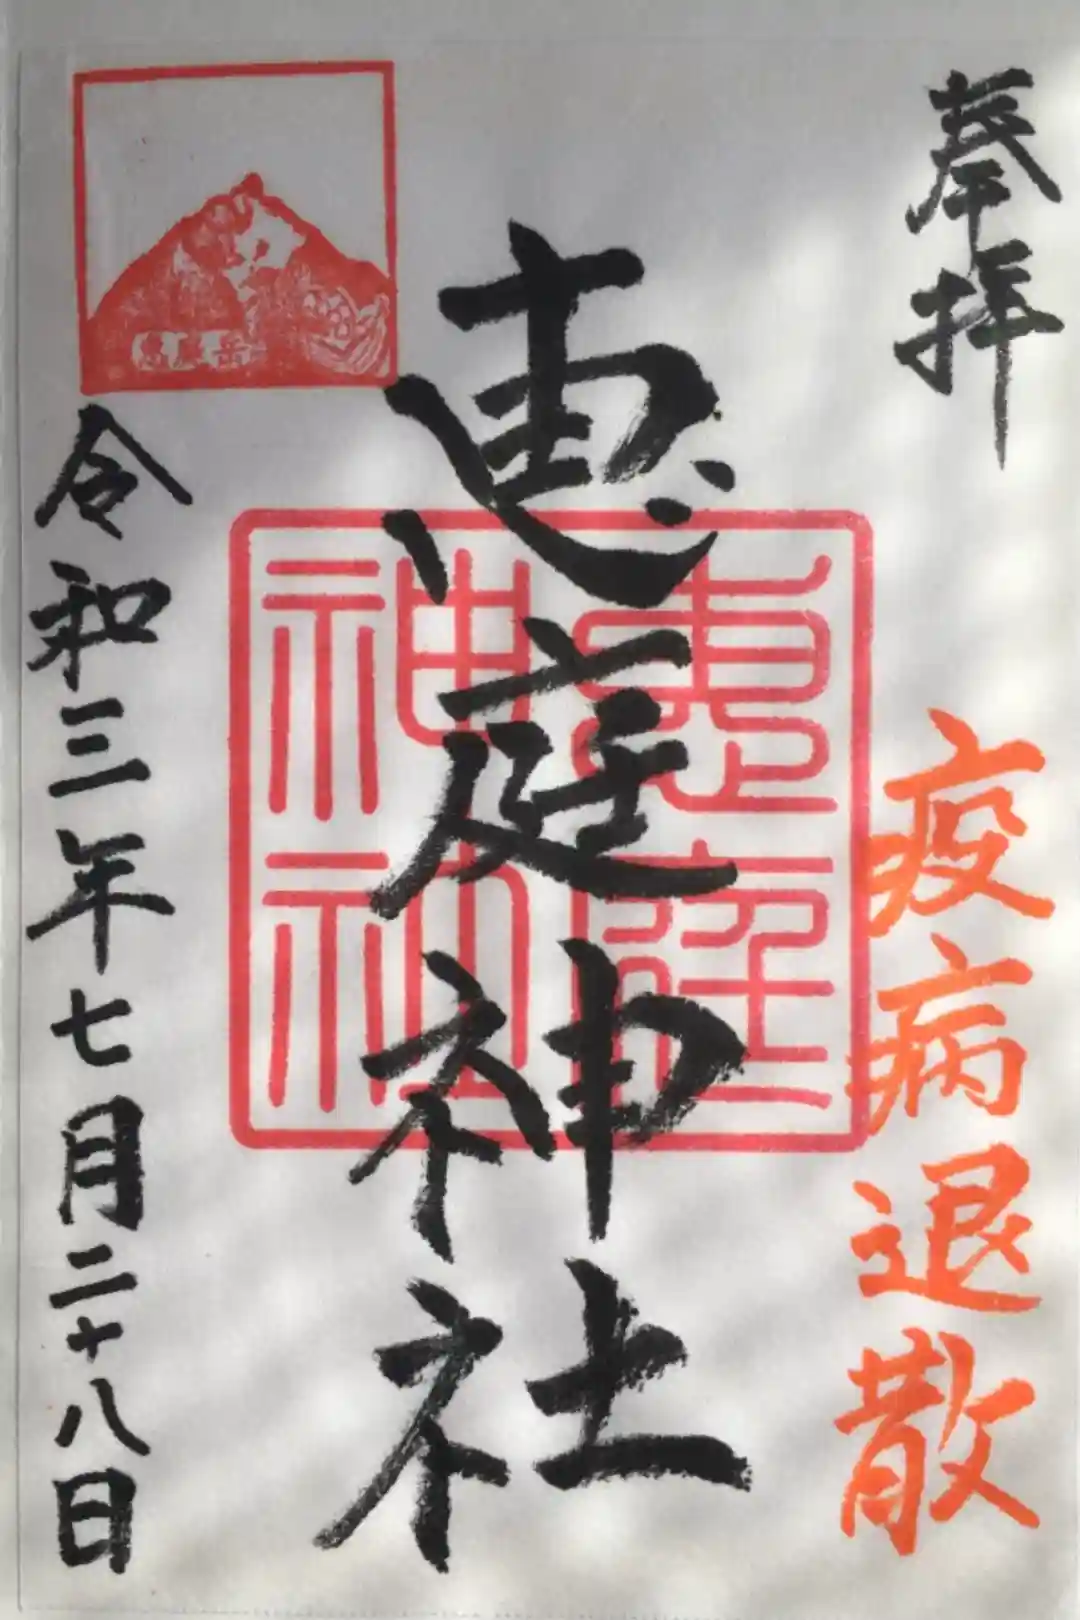 奉拝
疫病退散
恵庭神社
恵庭神社
恵庭岳
令和三年七月二十八日